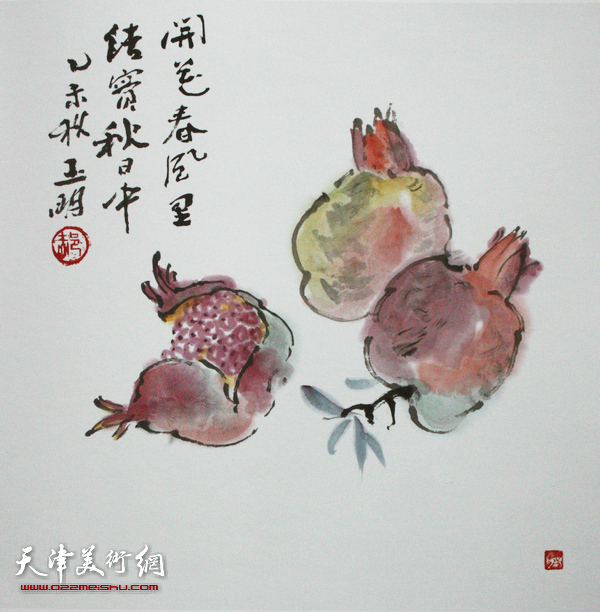 開花春風里
結實秋日中
乙未秋 玉明
郝
天津美術網
www.022meishu.com